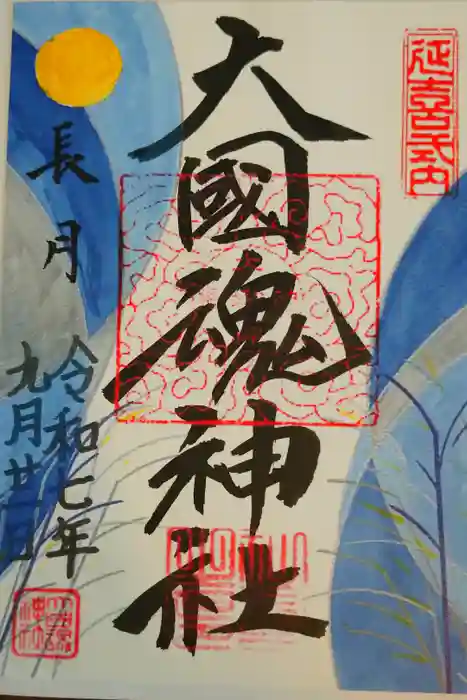 延喜式内
大國魂神社
長月
令和七年
九月廿二日